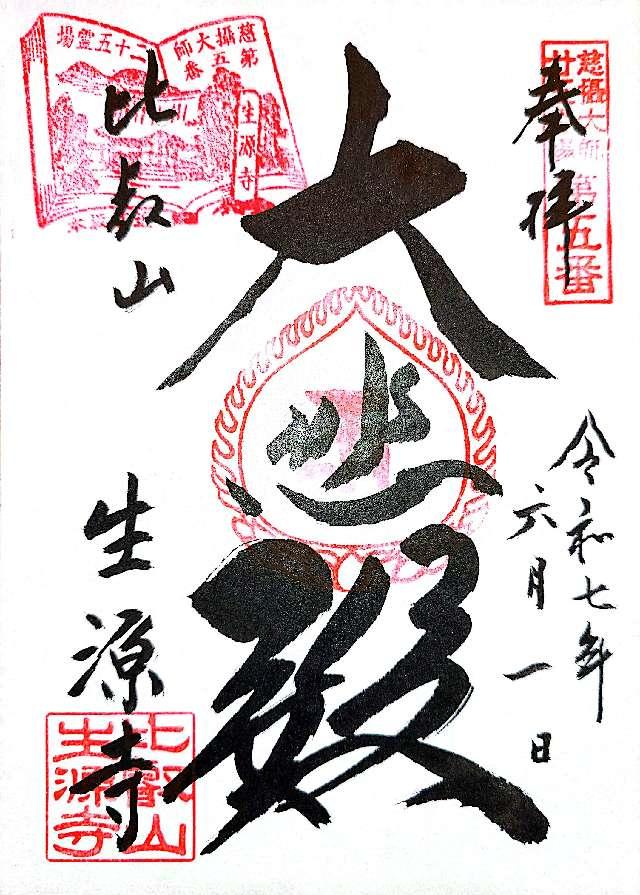 奉拝
慈攝大師
廿五霊場
第五番
令和七年
六月一日
大悲殿
比叡山
生源寺
慈攝大師
二十五霊場
第五番
生源寺
比叡山
生源寺